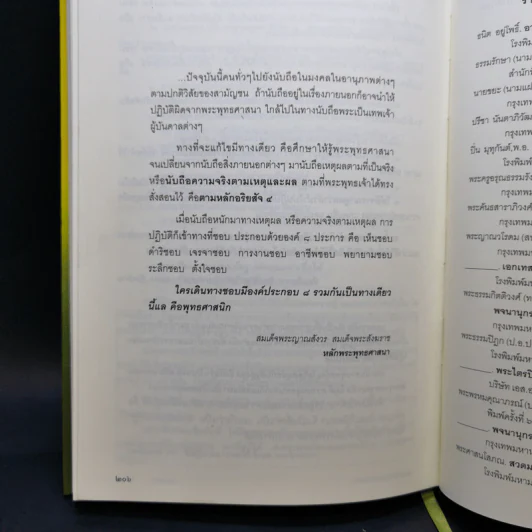 ...ปัจจุบันนี้คนทั่วๆไปยังนับถือในมงคลในอานุภาพต่างๆ
ตามปกติวิสัยของสามัญชน ถ้านับถืออยู่ในเรื่องภายนอกก็อาจนำให้
ปฏิบัติผิดจากพระพุทธศาสนา ใกล้ไปในทางนับถือพระเป็นเทพเจ้า
ผู้บันดาลต่างๆ
ทางที่จะแก้ไขมีทางเดียว คือศึกษาให้รู้พระพุทธศาสนา
จนเปลี่ยนจากนับถือสิ่งภายนอกต่างๆ มานับถือเหตุผลตามที่เป็นจริง
หรือนับถือความจริงตามเหตุและผล ตามที่พระพุทธเจ้าได้ทรง
สั่งสอนไว้ คือตามหลักอริยสัจ ๔
เมื่อนับถือหนักมาทางเหตุผล หรือความจริงตามเหตุผล การ
ปฏิบัติก็เข้าทางที่ชอบ ประกอบด้วยองค์ ๘ ประการ คือ เห็นชอบ
ดำริชอบ เจรจาชอบ การงานชอบ อาชีพชอบ พยายามชอบ
ระลึกชอบ ตั้งใจชอบ
ใครเดินทางชอบมีองค์ประกอบ ๘ รวมกันเป็นทางเดียว
นี้แล คือพุทธศาสนิก
สมเด็จพระญาณสังวร สมเด็จพระสังฆราช
หลักพระพุทธศาสนา
๒๐๖
ธนิต อยู่โพธิ์.
โรงพิม
ธรรมรักษา (นาม
สำนัก
นายชยะ (นามแฝ
กรุงเท
ปรีชา นันตาภิวัฒ
กรุงเทพ
ปิ่น มุทุกันต์,พ.อ.
โรงพิม
พระครูอรุณธรรมรัง
กรุงเทพ
พระคันธสาราภิวงศ์
กรุงเทพ
พระญาณวโรดม (สน
กรุงเทพม
เอกเทส
โรงพิมพ์ม
พระธรรมกิตติวงศ์ (ท
กรุงเทพม
พจนานุกร
พระธรรมปิฎก (ป.อ.ป
โรงพิมพ์มห
พระไตรปิ
บริษัท เอส.อ
พระพรหมคุณาภรณ์ (ป
พิมพ์ครั้งที่ ๖
พจนานุกร
กรุงเทพมหาน
พระศาสนโสภณ. สวดม
โรงพิมพ์มหาม